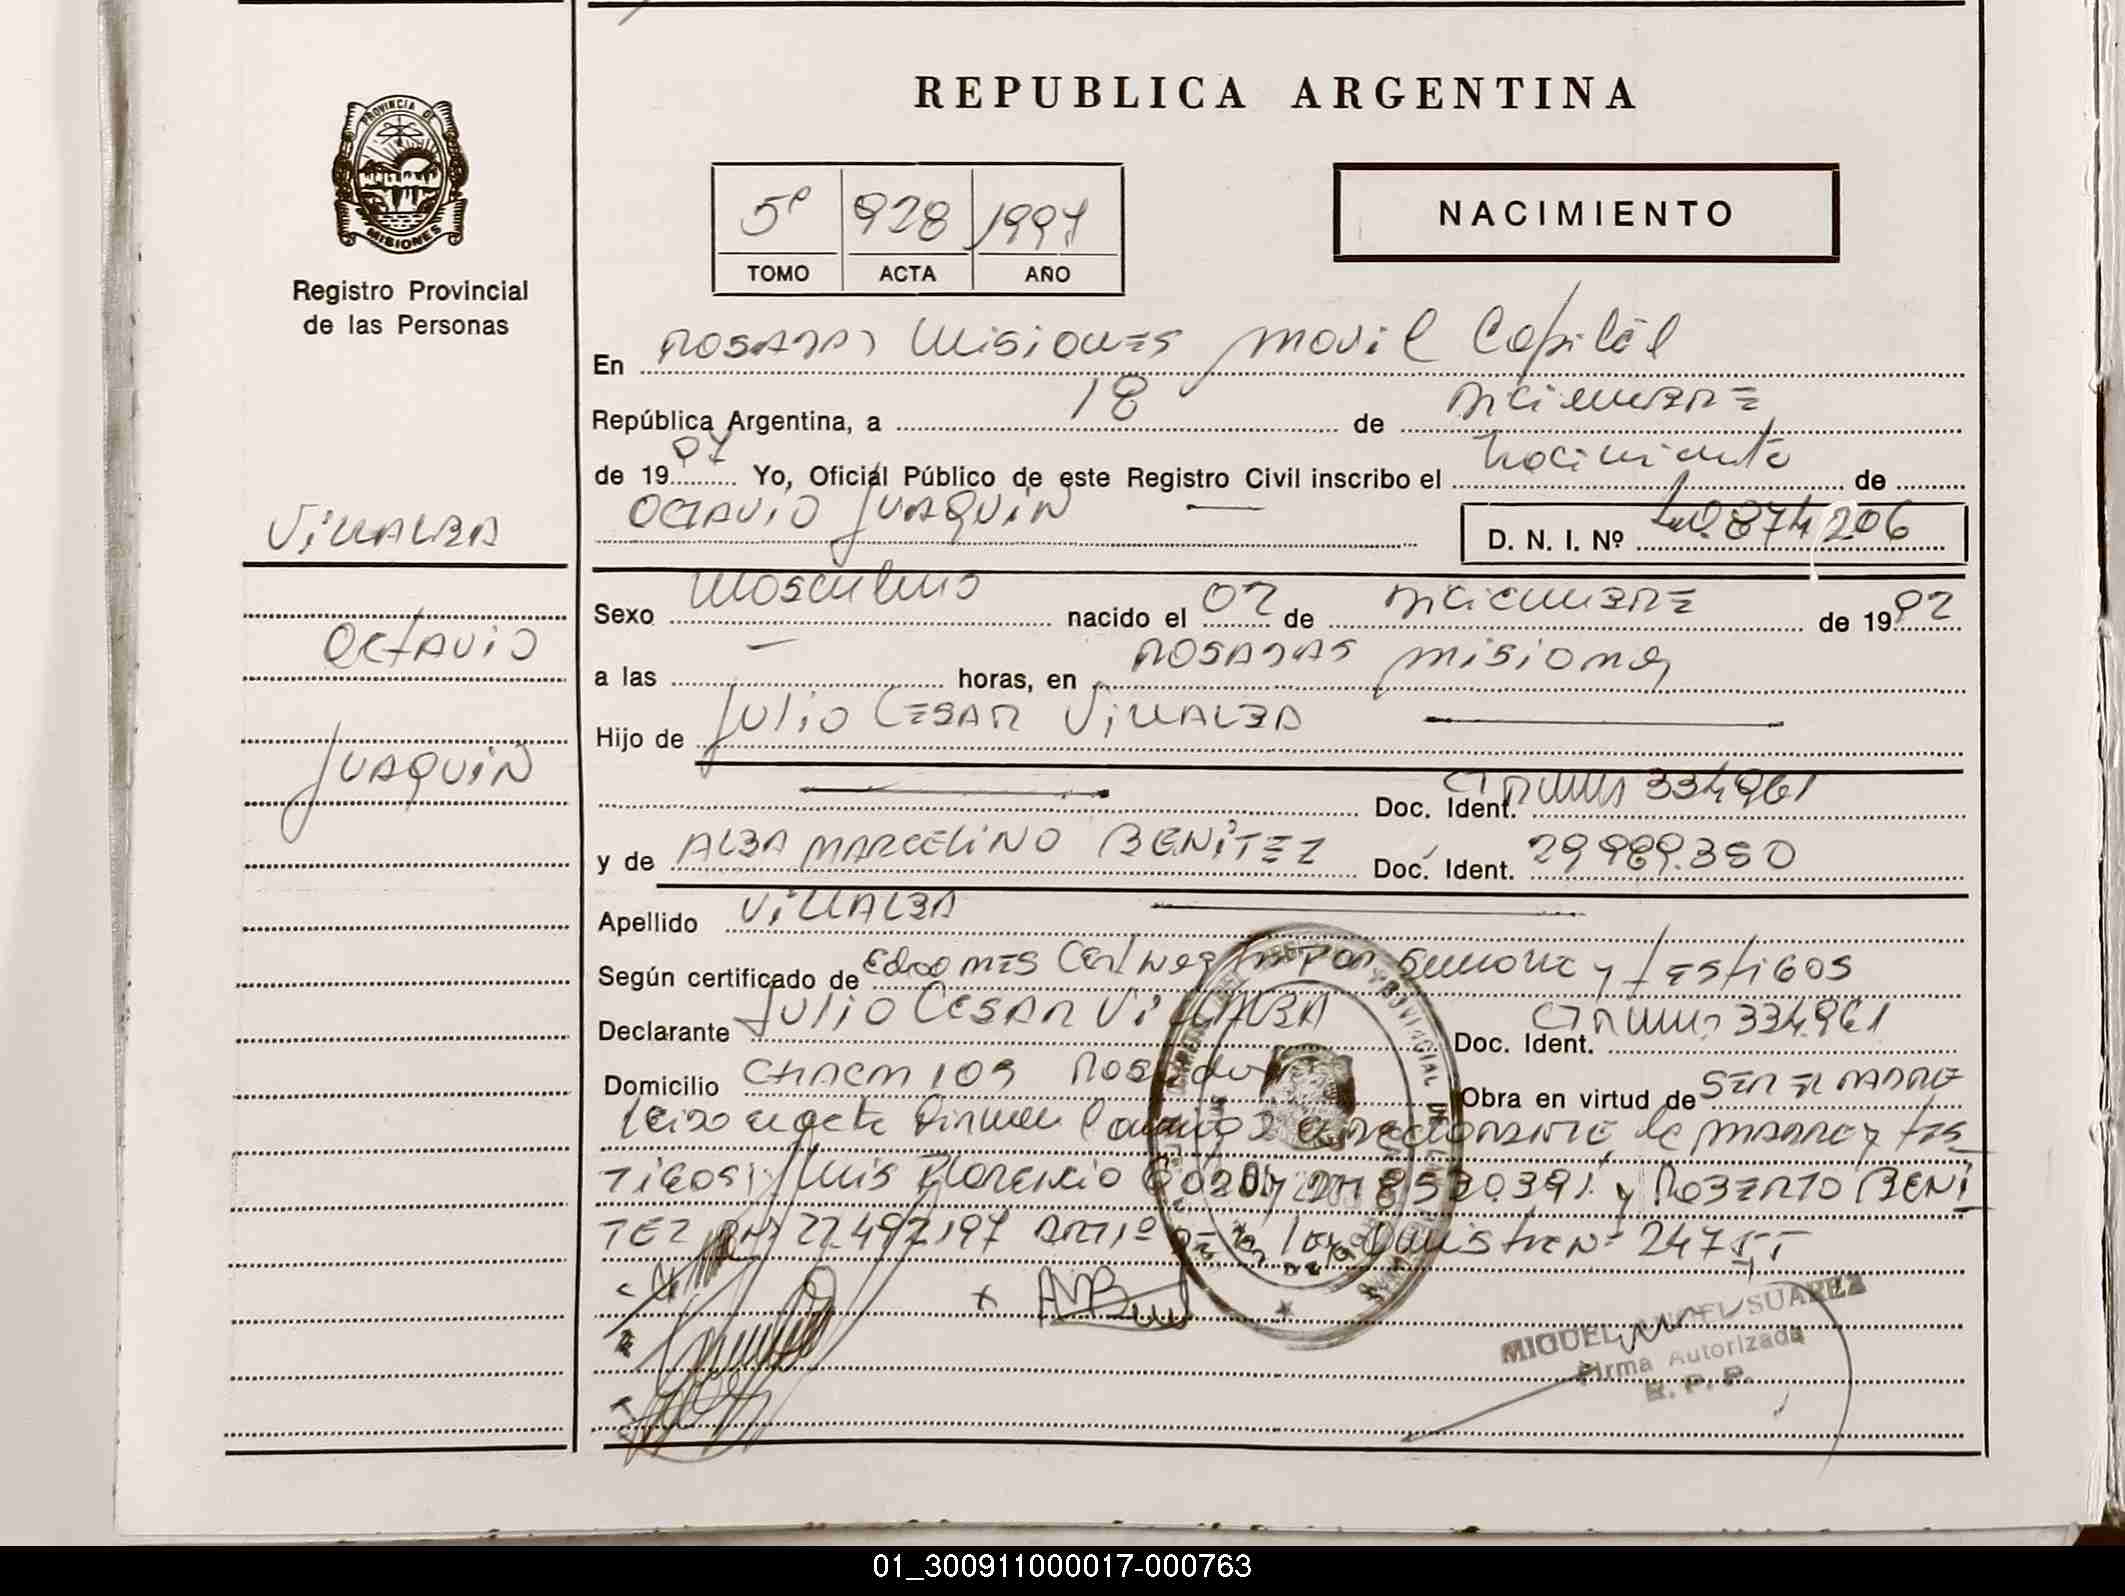 REPUBLICA ARGENTINA
PROVINCIA DE
MISIONES
Registro Provincial
de las Personas
5º 928 1997
TOMO ACTA AÑO
NACIMIENTO
En POSADAS MISIONES movil Capital
República Argentina, a 18 de DICIEMBRE
de 1997 Yo, Oficial Público de este Registro Civil inscribo el Nacimiento de
OCTAVIO JUAQUIN —
D. N. I. Nº 874/206
VILLALBA
OCTAVIO
JUAQUIN
Sexo Masculino nacido el 02 de DICIEMBRE de 1992
a las — horas, en POSADAS MISIONES
Hijo de JULIO CESAR VILLALBA
Doc. Ident. 334961
y de ALBA MARCELINO BENITEZ Doc. Ident. 29.989.350
Apellido VILLALBA
Según certificado de y TESTIGOS
Declarante JULIO CESAR VILLALBA Doc. Ident. 334.961
Domicilio CHACRA 109 Posadas Obra en virtud de SER EL PADRE
Leida el acta Firman de MADRE y TES
TIGOS: LUIS FLORENCIO y ROBERTO BENI
TEZ DNI 22.492.197 ART 1º DE 247
MIGUEL ANGEL SUAREZ
Firma Autorizada
R. P. P.
01_300911000017-000763